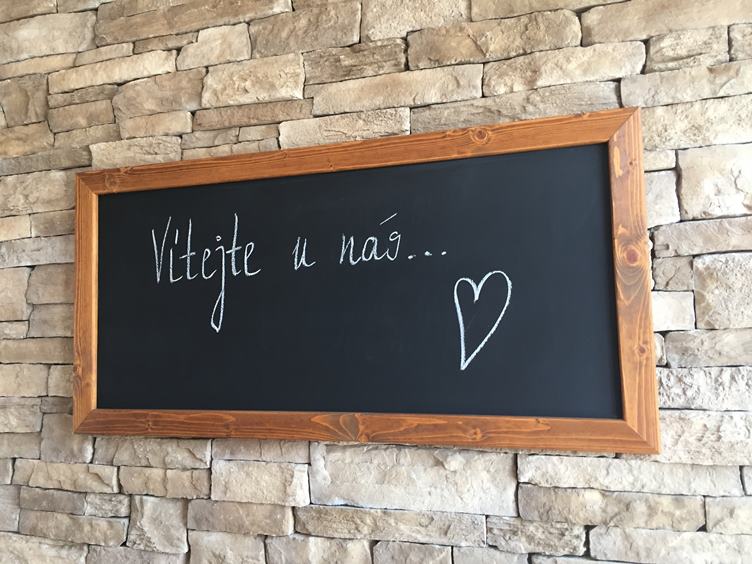 Vítejte u nás...